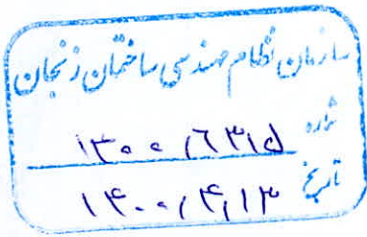 سازمان نظام مهندسی ساختمان زنجان
شماره ۱۳۰۰/۶۳۱۵
تاریخ ۱۴۰۰/۴/۱۳